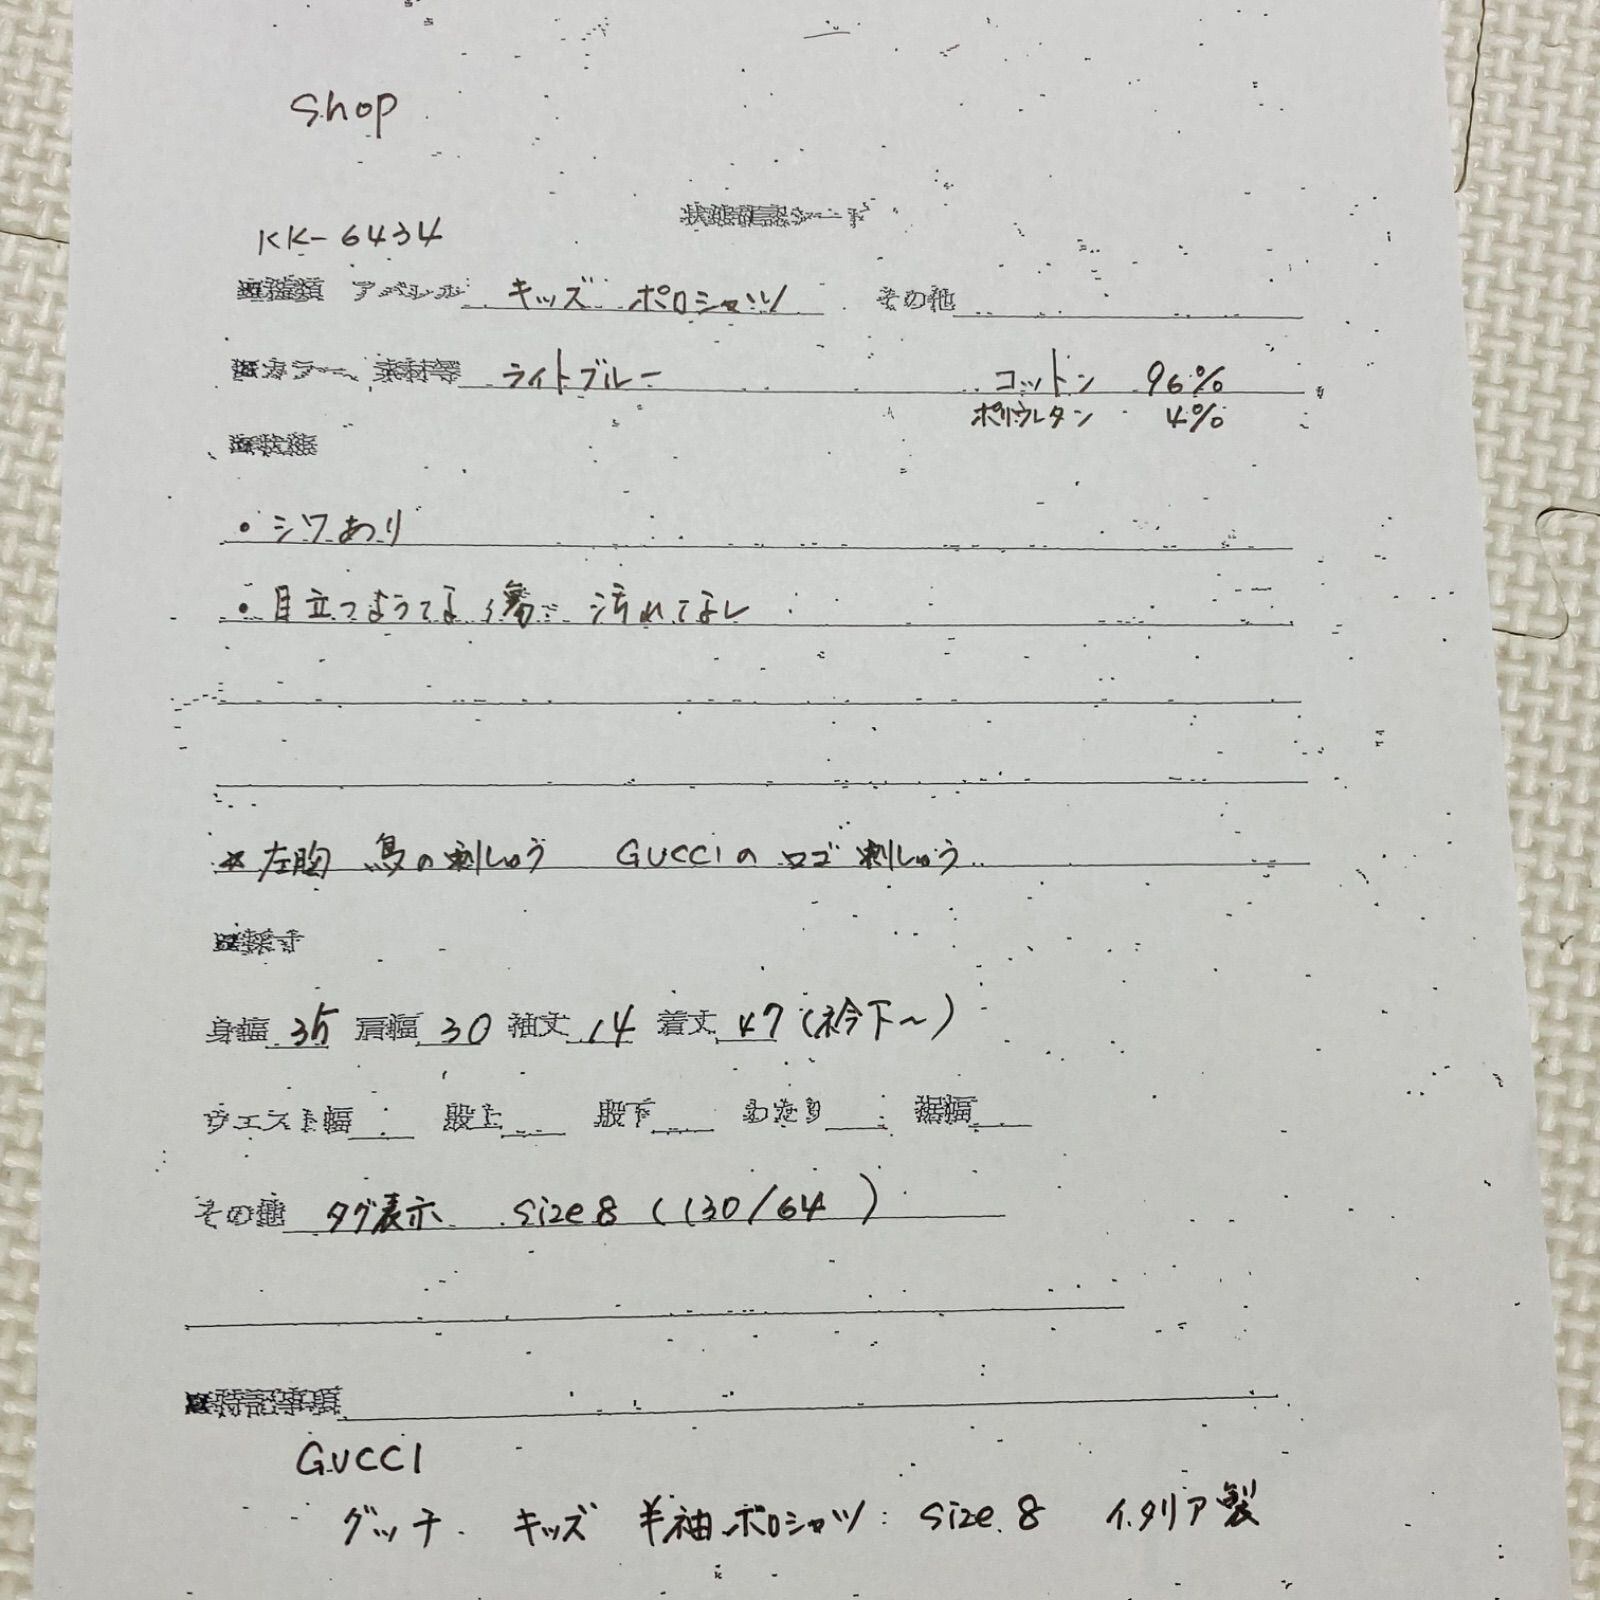 shop
状態確認シート
KK-6434
■種類 アパレル キッズ ポロシャツ その他
■カラー、素材等 ライトブルー コットン 96%
ポリウレタン 4%
■状態
・シワあり
・目立つような傷・汚れなし
☆左胸 鳥の刺しゅう GUCCIのロゴ刺しゅう
■採寸
身幅 35 肩幅 30 袖丈 14 着丈 47(衿下~)
ウエスト幅 股上 股下 わたり 裾幅
その他 タグ表示 size8(130/64)
■特記事項
GUCCI
グッチ キッズ 半袖ポロシャツ size 8 イタリア製